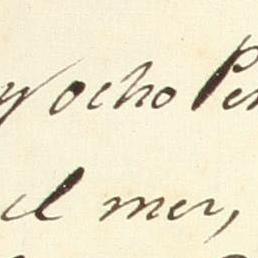 y ocho Pe
el mer,